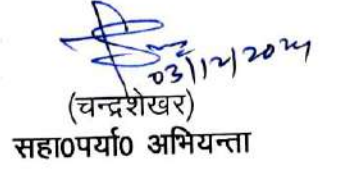 03/12/2024
(चन्द्रशेखर)
सहा0पर्या0 अभियन्ता